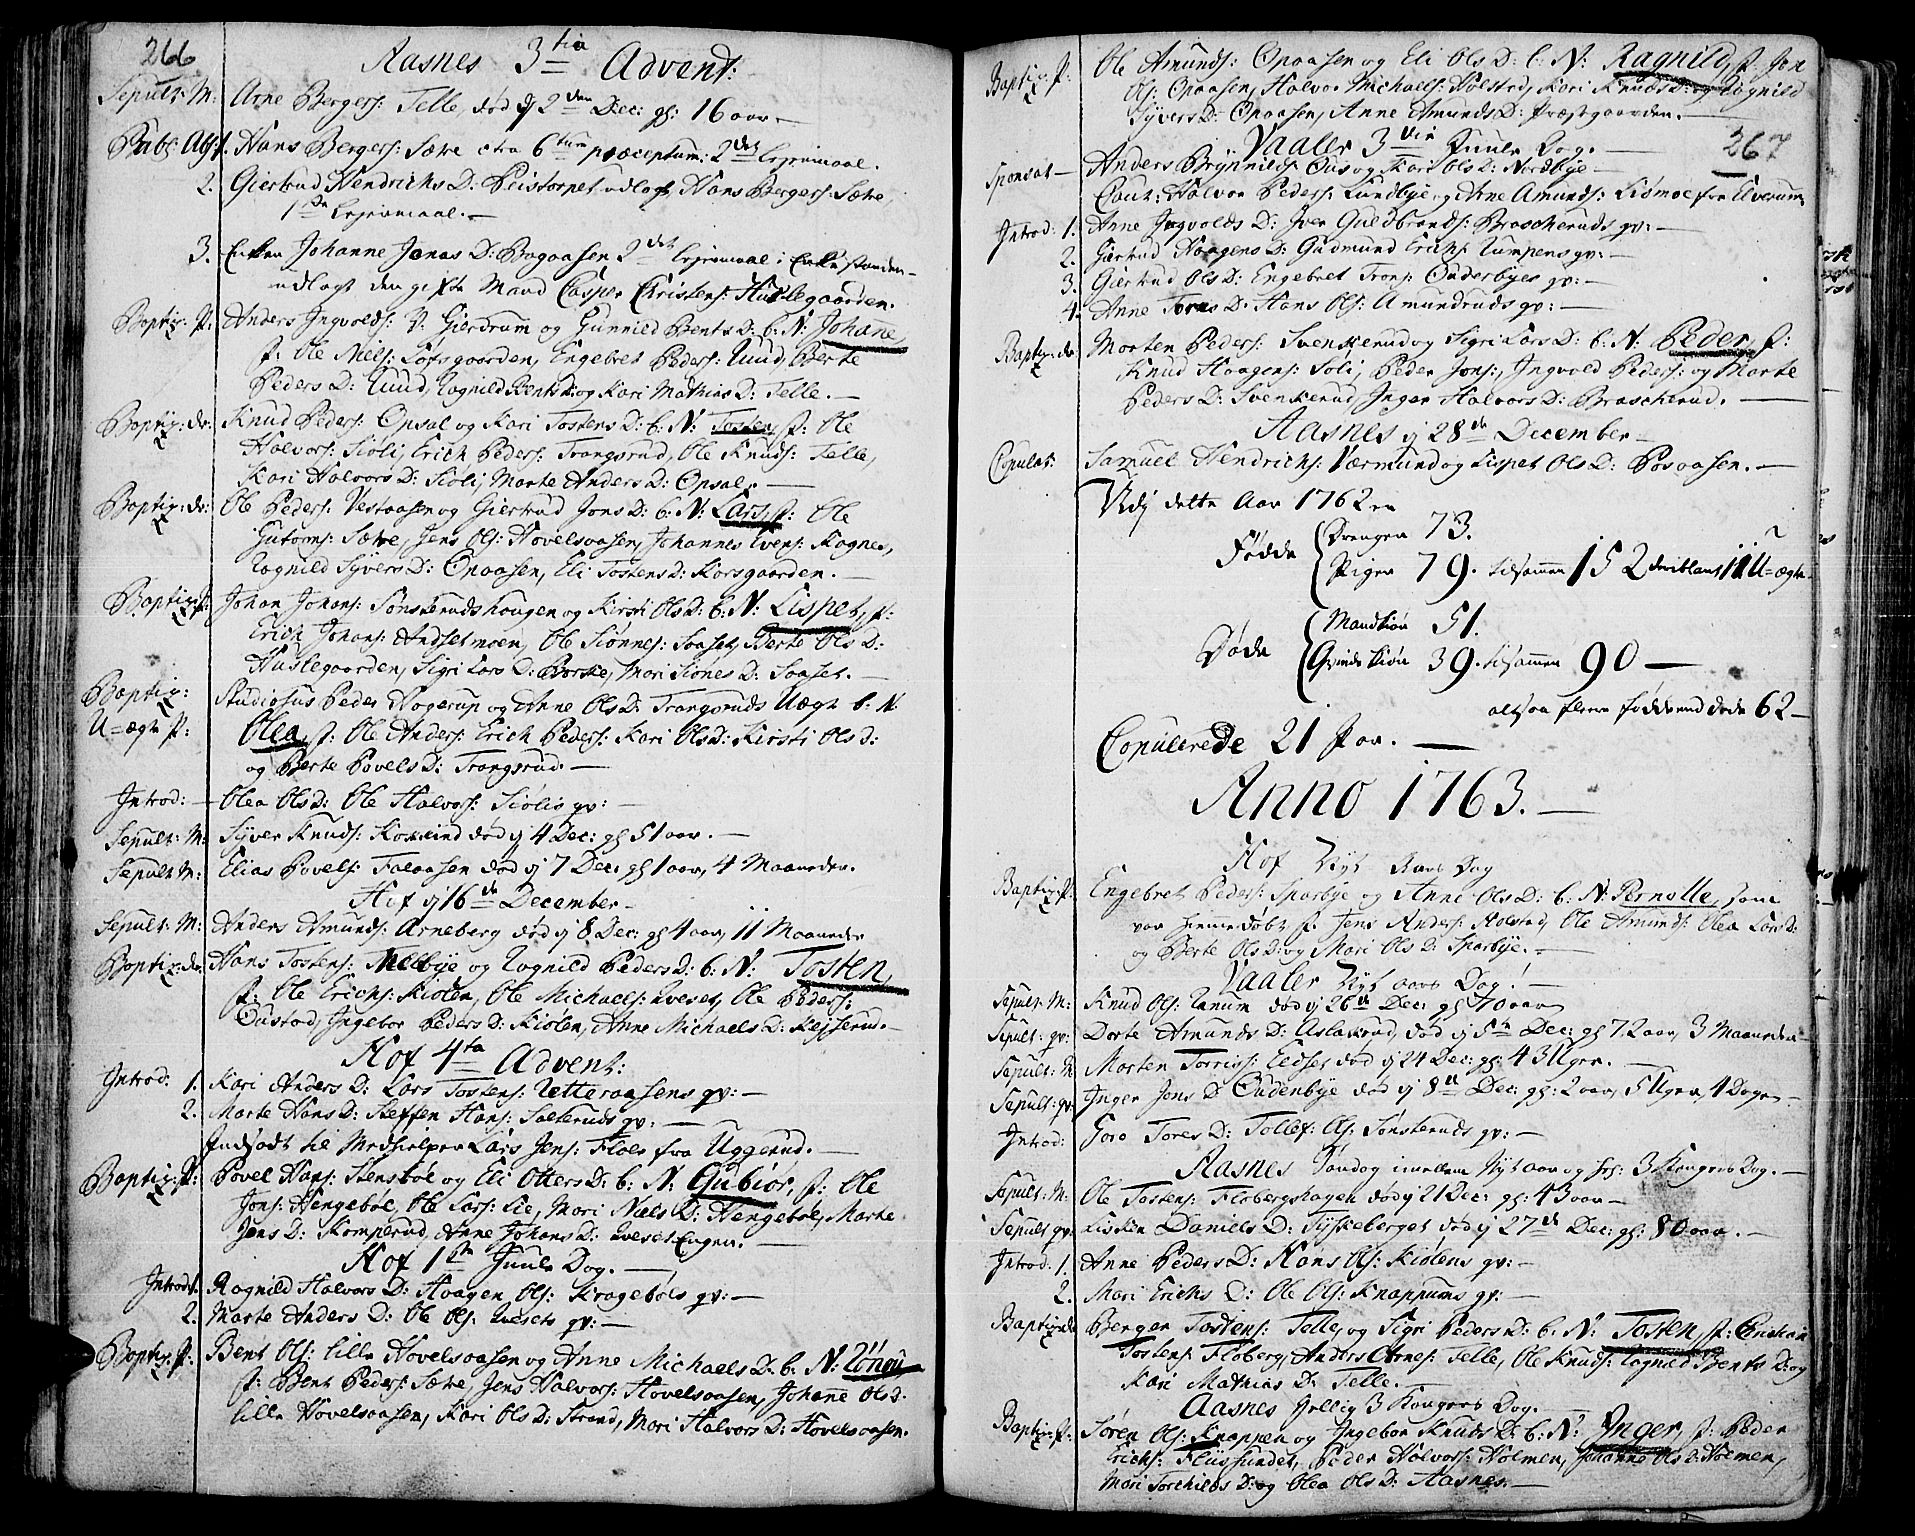 266
Aasnes 3tia Advent:
Sepult: M: Arne Bergers: Telle, død d 2den Dec: gl: 16 aar.—
Publ: Abs: 1. Hans Bergers: Sætre ctra 6tum præceptum: 2det Lejermaal.
2. Giertrud Hendrichs D: Peistorpet udlagt Hans Bergers: Sætre,
1ste Lejermaal.—
3. Enken Johanne Jonas D: Bogaasen 2det Lejermaal i Enke standen—
udlagt den gifte Mand Casper Christens: Huslegaarden.
Baptiz: P: Anders Ingvolds: V: Gierdrum og Gunnild Bents D: b: N: Johanne,
F: Ole Niels: Løfsgaarden, Engebret Peders: Ruud, Berte
Peders D: Ruud, Ragnild Bents D: og Kari Mathias D: Telle.—
Baptiz: dr: Knud Peders: Opsal og Kari Tostens D: b: N: Tosten, F: Ole
Halvors: Siøli, Erich Peders: Trangsrud, Ole Knuds: Telle,
Kari Halvors D: Siøli, Marte Anders D: Opsal.—
Baptiz: dr: Ole Peders: Vestaasen og Giertrud Jons D: b: N: Lars, F: Ole
Gutorms: Sætre, Jens Ols: Hovelsaasen, Johannes Evens: Kognes,
Ragnild Syvers D: Opaasen, Eli Tostens D: Korsgaarden.—
Baptiz: P: Johan Johans: Sønsterudshaugen og Kirsti Ols D: b: N: Lispet, F:
Erich Johans: Andsetmoen, Ole Siønnes: Saaset, Berte Ols D:
Huslegaarden, Sigri Lars D: Borske, Mari Siones D: Saaset.—
Baptiz: Studiosus Peder Hogerup og Anne Ols D: Trangsruds Uægt b: N
U=ægte P: Olea, F: Ole Anders: Erich Peders: Kari Ols D: Kirsti Ols D:
og Berte Povels D: Trangsrud.—
Introd: — Olea Ols D: Ole Halvors: Siølis qv:—
Sepult: M: Syver Knuds: Korneind død d 4 Dec: gl 51 aar.—
Sepult: M: Elias Povels: Falaasen død d 7 Dec: gl 1 aar, 4 Maaneder.
Hof d 16de December—
Sepult: M: Anders Amunds: Arneberg død d 8 Dec: gl 1 aar, 11 Maaneder
Baptiz: dr: Hans Tostens: Melbye og Ragnild Peders D: b: N: Tosten,
F: Ole Erichs: Kiølen, Ole Michaels: Qveset, Ole Peders:
Oustad, Ingebor Peders D: Kiølen, Anne Michaels D: Kejserud.—
Hof 4ta Advent:
Introd: 1. Kari Anders D: Lars Tostens: Utteraasens qv:—
2. Marte Hans D: Steffen Hans: Sæteruds qv:—
Indsadt til Medhielper Lars Jens: Floer fra Uggerud.—
Baptiz: P: Povel Hans: Stensbøl og Eli Otters D: b: N: Gubiør, F: Ole
Jons: Hengebøl, Ole Lars: Lie, Mari Niels D: Hengebøl, Marte
Jens D: Komperud, Anne Johans D: Qveset Engen.—
Hof 1ste Juule Dag.—
Introd: 1. Ragnild Halvors D: Haagen Ols: Kragebøls qv:—
2. Marte Anders D: Ole Ols: Qvesets qv:—
Baptiz: P: Bent Ols: lille Hovelsaasen og Anne Michaels D: b: N: Rønou
F: Bent Peders: Sætre, Jens Halvors: Hovelsaasen, Johanne Ols D:
lille Hovelsaasen, Kari Ols D: Strand, Mari Halvors D: Hovelsaasen.
Baptiz: P: Ole Amunds: Opaasen og Eli Ols D: b: N: Ragnild, F: Jon
Ols: Opaasen, Halvor Michaels: Holstad, Kari Knuds D: og Ragnild
Syvers D: Opaasen, Anne Amunds D: Præstgaarden.—
267
Vaaler 3die Juule Dag.—
Sponsat— Anders Brynnilds: Ous og Kari Ols D: Nordbye—
Caut: Halvor Peders: Lundbye og Arne Amunds: Lismoe fra Elverum
Introd: 1. Anne Ingvolds D: Iver Guldbrands: Brascheruds qv:—
2. Giertrud Haagens D: Gudmund Erichs: Rumpens qv:—
3. Giertrud Ols D: Engebret Trons: Ouderbyes qv:—
4. Anne Tores D: Hans Ols: Amundruds qv:—
Baptiz: dr: Morten Peders: Svenkerud og Sigri Lars D: b: N: Peder, F:
Knud Haagens: Soli, Peder Jons:, Ingvold Peders: og Marte
Peders D: Svenkerud, Inger Halvors D: Brascherud.—
Aasnes d 28de December—
Copulat: Samuel Hendrichs: Værmund og Lispet Ols D: Posaasen.—
Udj dette Aar 1762 er
Fødde
Drenger 73.
Piger 79. tilsammen 152 deriblant 11 U=ægte
Døde
Mandkiøn 51.
Qvindekiøn 39. tilsammen 90—
altsaa fleere fødde end døde 62—
Copulerede 21 Par.—
Anno 1763.—
Hof Nyt Aars Dag
Baptiz: P: Engebret Peders: Sparbye og Anne Ols D: b: N: Pernolle, som
var hiemmedøbt F: Jens Anders: Holstad, Ole Amunds: Olea Lars D:
og Berte Ols D: og Mari Ols D: Sparbye.—
Vaaler Nyt aars Dag.—
Sepult: M: Knud Ols: Ranum død d 26de Dec: gl 70 aar
Sepult: qv: Dorte Amunds D: Aslakrud, død d 5te Dec: gl 72 aar, 3 Maaneder
Sepult: M Morten Torriss: Eidset død d 24 Dec: gl: 43 Uger.—
Sepult: qv: Inger Jens D: Oudenbye død d 8de Dec: gl: 2 aar, 5 Uger, 4 Dage—
Introd: Goro Tores D: Tollef: Ols: Sønsteruds qv:—
Aasnes Søndag imellem Nyt aar og hel: 3 Kongers Dag.—
Sepult: M: Ole Tostens: Flobergshagen død d 21 Dec: gl: 43 aar—
Sepult qv: Lisken Daniels D: Tyskeberget død d 27de Dec: gl: 80 aar.—
Introd: 1. Anne Peders D: Hans Ols: Kiølens qv:—
2. Mari Erichs D: Ole Ols: Knappums qv:—
Baptiz: dr: Berger Tostens: Telle, og Sigri Peders D: b: N: Tosten, F: Christian
Tostens: Floberg, Anders Arnes: Telle, Ole Knuds: Ragnild Bents D: og
Kari Mathias D: Telle.—
Aasnes hellig 3 Kongers Dag.—
Baptiz: P: Søren Ols: Knappen og Ingebor Knuds D: b: N: Inger, F: Peder
Erichs: Flissundet, Peder Halvors: Holmen, Johanne Ols D: Holmen,
Mari Torchilds D: og Olea Ols D: Aasnes.—